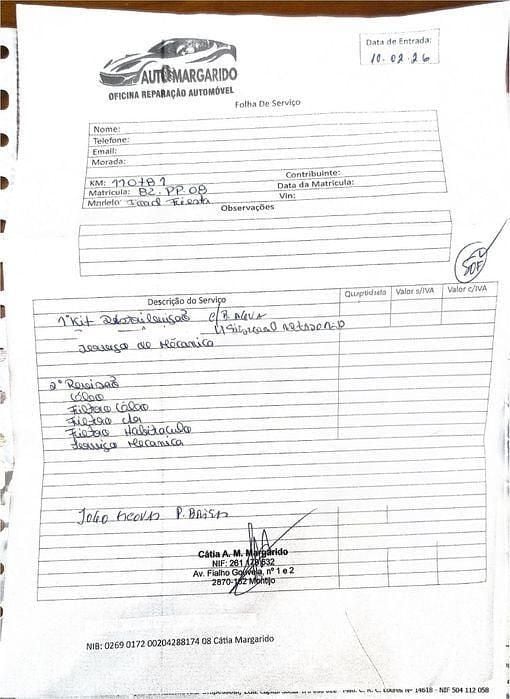 AUTOMARGARIDO
OFICINA REPARAÇÃO AUTOMÓVEL
Data de Entrada:
10-02-26
Folha De Serviço
Nome:
Telefone:
Email:
Morada:
KM: 110781
Contribuinte:
Matricula: BZ-PP-08
Data da Matricula:
Modelo: Ford Fiesta
Vin:
Observações
Descrição do Serviço
Quantidade
Valor s/IVA
Valor c/IVA
1º Kit Distribuição C/B AGUA
Serviço de Mecanica
2º Revisão
Óleo
Filtro Óleo
Filtro Ar
Filtro Habitaculo
Serviço Mecanica
Cátia A. M. Margarido
NIF: 261 179 632
Av. Fialho Gouveia, nº 1 e 2
2870-152 Montijo
NIB: 0269 0172 00204288174 08 Cátia Margarido
Nº 14618 - NIF 504 112 058